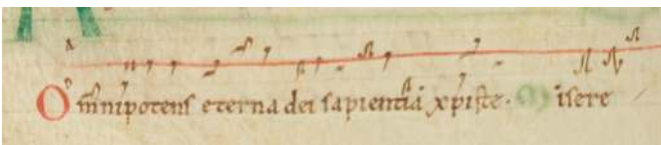 Omnipotens eterna dei sapientia xp̄iste. Misere